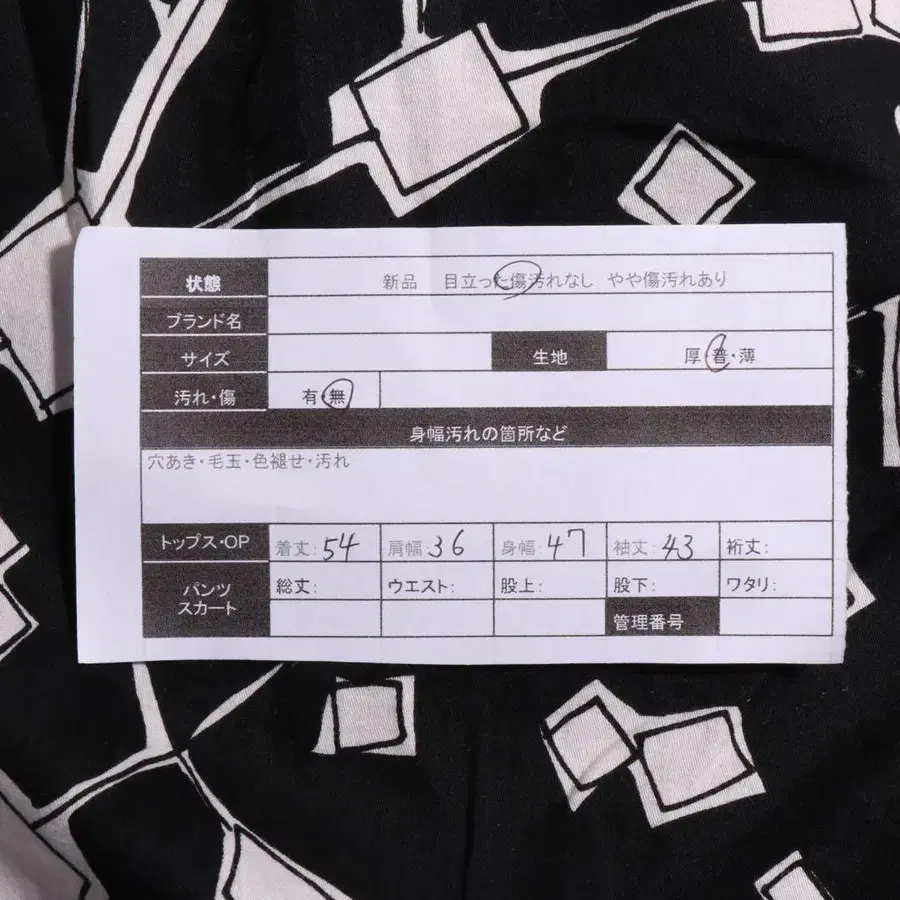 状態 新品 目立った傷汚れなし やや傷汚れあり
ブランド名
サイズ 生地 厚・普・薄
汚れ・傷 有・無
身幅汚れの箇所など
穴あき・毛玉・色褪せ・汚れ
トップス・OP 着丈: 54 肩幅: 36 身幅: 47 袖丈: 43 裄丈:
パンツ 総丈: ウエスト: 股上: 股下: ワタリ:
スカート 管理番号